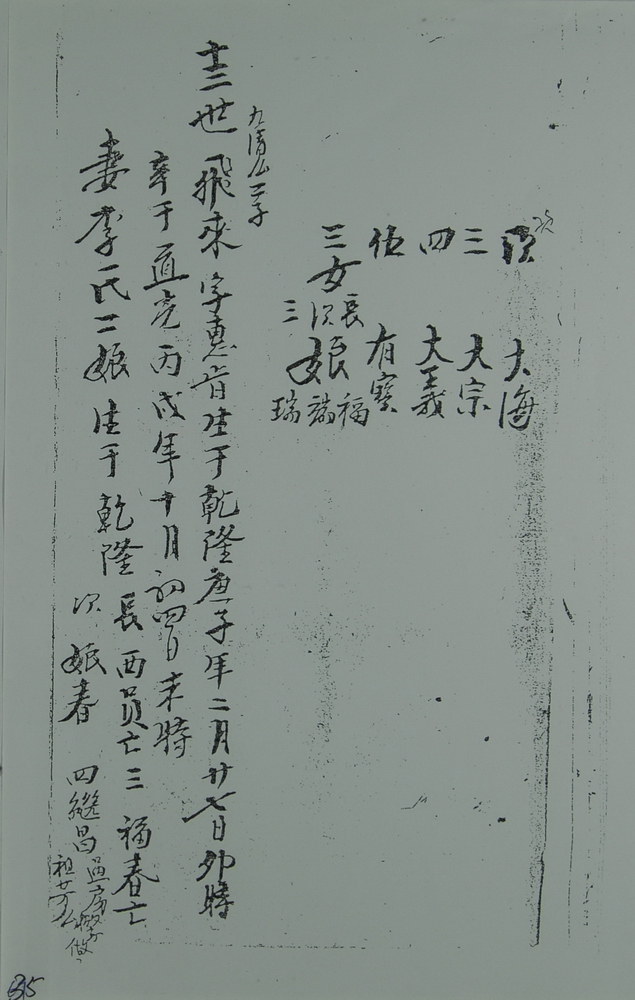 次
大海
三 大宗
四 大義
伍 有寶
三女 長 娘福
次 娘瑞
三 娘瑞
九清公二子
十二世 飛來 字惠 生于乾隆庚子年二月廿七日卯時
卒于道光丙戌年十月初四日未時
妻李氏二娘生于乾隆
長 西員亡 三 福春亡
次 娘春 四繼昌
35